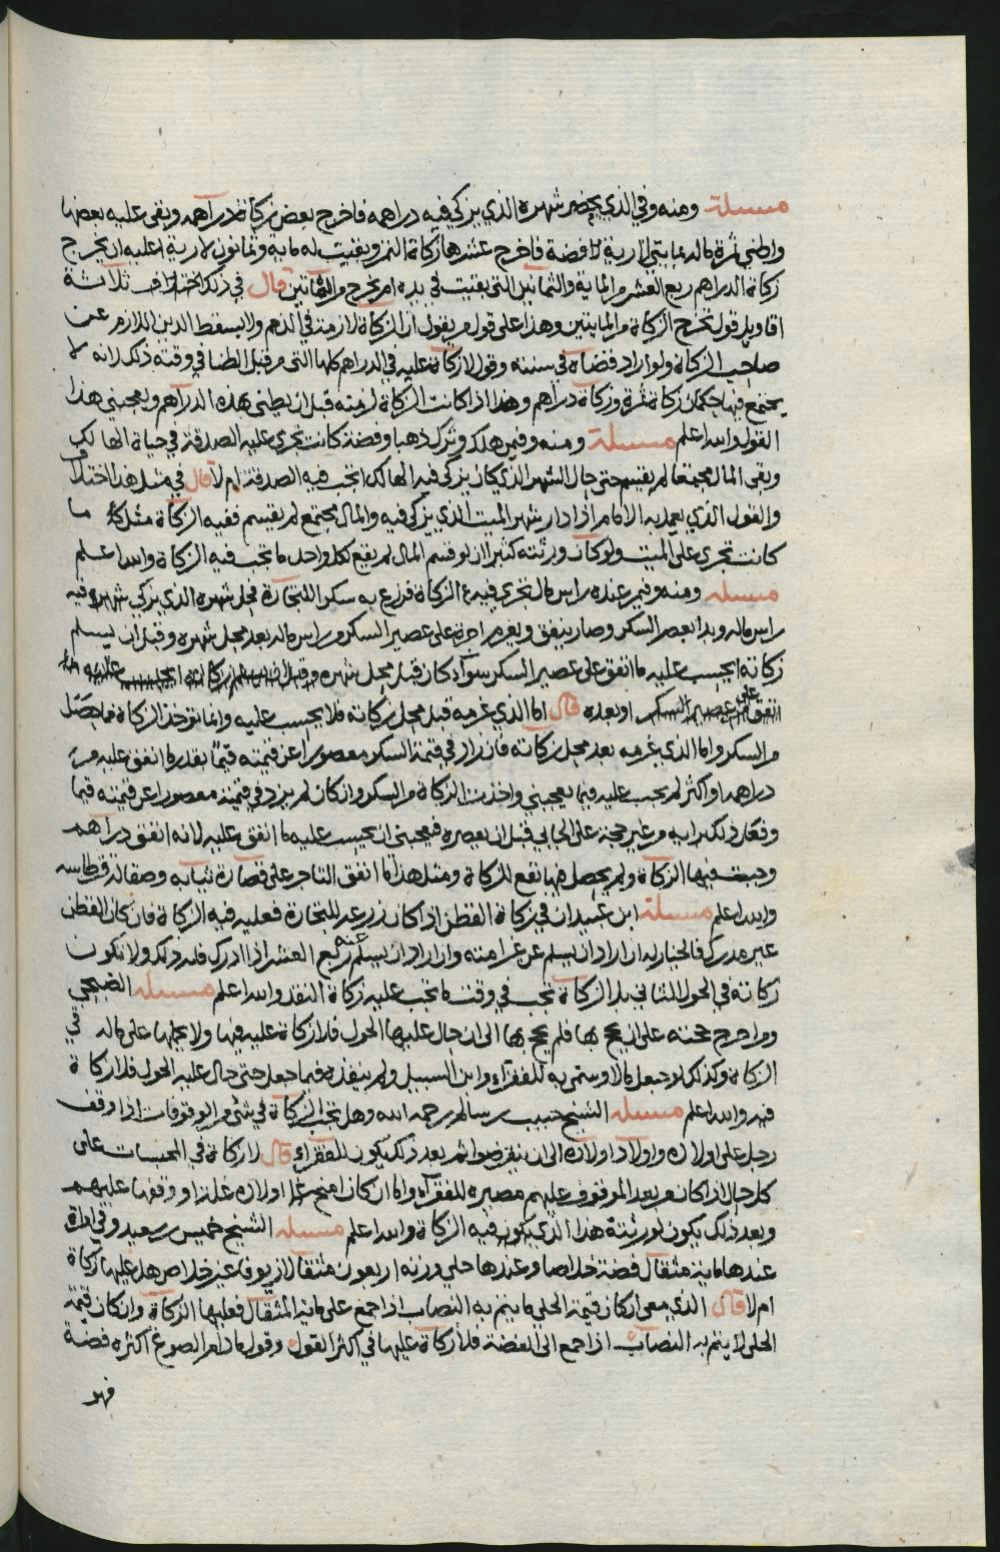 مسئلة ومنه وفي الذي يحضر شهره الذي يزكي فيه دراهمه فاخرج بعض زكاة دراهمه وبقي عليه بعضها
واطنى ثمرة ماله بمايتي لارية فضة فاخرج عشرها زكاة الثمر وبقيت له ماية وثمانون لارية اعليه ان يخرج
زكاة الدراهم ربع العشر من الماية والثمانين التي بقيت في يده ام يخرج من المايتين قال في ذلك اختلاف ثلاثة
اقاويل قول تخرج الزكاة من المايتين وهذا على قول من يقول ان الزكاة لازمة في الذمم ولا يسقط الدين اللازم عن
صاحب الزكاة ولو اراد قضاه في سنته وقول لا زكاة عليه في الدراهم كلها التي من قبل الطنا في وقته ذلك لانه لا
يجتمع فيها حكمان زكاة ثمرة وزكاة دراهم وهذا اذا كانت الزكاة لزمته قبل ان يطني بهذه الدراهم ويعجبني هذا
القول والله اعلم مسئلة ومنه وفيمن هلك وترك ذهبا وفضة كانت تجري عليه الصدقة في حياة الهالك
وبقي المال مجتمعا لم يقسم حتى حال الشهر الذي كان يزكي فيه الهالك اتجب فيه الصدقة ام لا قال في مثل هذا اختلاف
والقول الذي يعمل به الامام اذا دار شهر الميت الذي يزكي فيه والمال مجتمع لم يقسم ففيه الزكاة مثل ما
كانت تجري على الميت ولو كان ورثته كثيرا لو قسم المال لم يقع لكل واحد ما تجب فيه الزكاة والله اعلم
مسئلة ومنه وفيمن عنده راس مال تجري فيه الزكاة فزرع به سكر للتجارة فحل شهره الذي يزكي فيه
راس ماله وبدا بعصر السكر وصار ينفق ويغرم اجرة على عصير السكر من راس ماله بعد محل شهره وقبل ان يسلم
زكاته ايحسب عليه ما انفق على عصير السكر سوآء كان قبل محل شهره
او بعده قال اما الذي غرمه قبل محل زكاته فلا يحسب عليه وانما تؤخذ الزكاة مما حصل
من السكر واما الذي غرمه بعد محل زكاته فان زاد في قيمة السكر معصورا عن قيمته قيما بقدر ما انفق عليه من
دراهمه او اكثر لم يحسب عليه فيما يعجبني واخذت الزكاة من السكر وان كان لم يزد في قيمته معصورا عن قيمته قيما
وفعل ذلك برايه من غير حجة على الجابي قبل ان يعصره فيعجبني ان يحسب عليه ما انفق عليه لانه انفق دراهم
وجبت فيها الزكاة ولم يحصل فيها نفع للزكاة ومثل هذا ما انفق التاجر على قصارة ثيابه وصقالة قرطاسه
والله اعلم مسئلة ابن عبيدان في زكاة القطن اذا كان زرعه للتجارة فعليه فيه الزكاة فان كان القطن
غير مدرك فالخيار له ان اراد ان يسلم عن غرامته وان اراد ان يسلم ربع العشر اذا ادرك فله ذلك ولا تكون
زكاته في الحول الثاني بل الزكاة تجب في وقت ما تجب عليه زكاة النقد والله اعلم مسئلة الصبحي
ومن اخرج حجته على ان يحج بها فلم يحج بها الى ان حال عليها الحول فلا زكاة عليه فيها ولا يحملها على ماله في
الزكاة وكذلك لو جعل مالا وسمى به للفقراء وابن السبيل ولم ينفذه فيما جعل حتى حال عليه الحول فلا زكاة
فيه والله اعلم مسئلة الشيخ حبيب بن سالم رحمه الله وهل تجب الزكاة في شيء من الوقوفات اذا وقف
رجل على اولاده واولاد اولاده الى ان ينقرضوا ثم بعد ذلك يكون للفقراء قال لا زكاة في المحبسات على
كل حال اذا كان من بعد الموقوف عليهم مصيره للفقرآء واما ان كان امنح اولاده غلة او وقفها عليهم
وبعد ذلك يكون لورثته هذا الذي يكون فيه الزكاة والله اعلم مسئلة الشيخ خميس بن سعيد وفي امراة
عندها ماية مثقال فضة خلاصا وعندها حلي وزنه اربعون مثقالا زيوف غير خلاص هل عليها زكاة
ام لا قال الذي معي ان كان قيمة الحلي ما يتم به النصاب اذا جمع على ماية المثقال فعليها الزكاة وان كان قيمة
الحلي لا يتم به النصاب اذا جمع الى الفضة فلا زكاة عليها في اكثر القول وقول ما دام الصوغ اكثره فضة
فهو